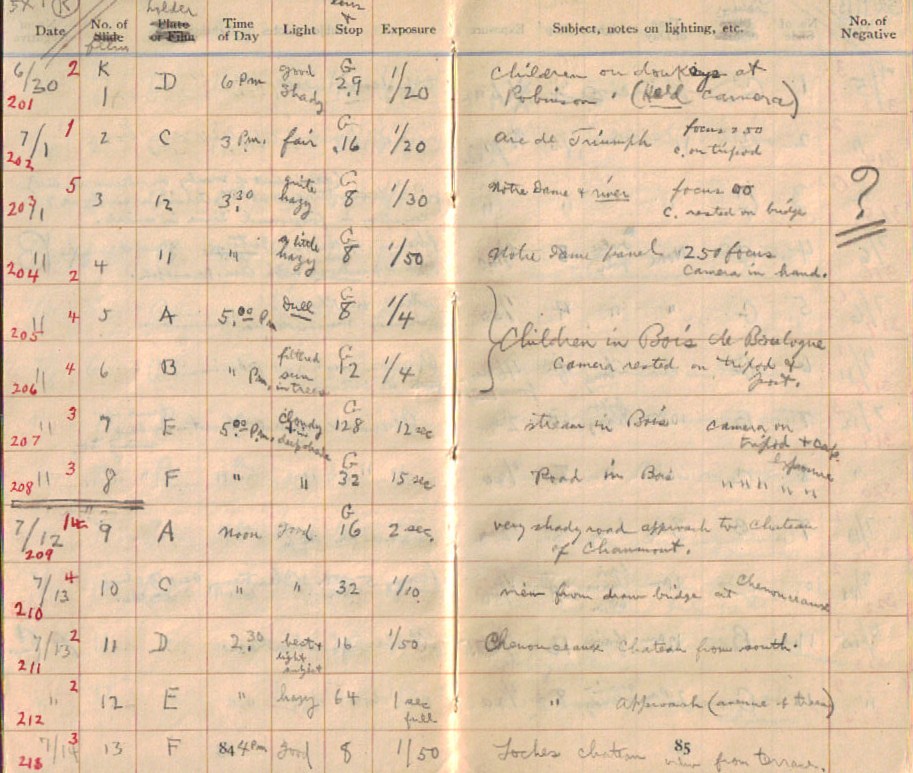 5x7 (K)
Date No. of Slide film holder Plate or Film Time of Day Light & Stop Exposure Subject, notes on lighting, etc. No. of Negative
6/30 2 K 1 D 6 Pm good Shady G 2.9 1/20 Children on donkeys at
201 Robinson. (Held camera)
7/1 1 2 C 3 P.m. fair G .16 1/20 Arc de Triumph focus 250
202 C. on tripod
5 3 12 3.30 quite hazy G 8 1/30 Notre Dame & river focus ∞ ?
203 C. rested on bridge
" 4 11 " a little hazy G 8 1/50 Notre Dame panel 250 focus
204 2 camera in hand.
" 4 5 A 5.00 Pm Dull G 8 1/4
205 Children in Bois de Boulogne
" 4 6 B " Pm. filtred sun in trees G 12 1/4 camera rested on tripod &
206 foot.
" 3 7 E 5.00 P.m. cloudy G 128 12 sec stream in Bois camera on
207 tripod + cap
exposure
" 3 8 F " " G 32 15 sec Road in Bois " " " " "
208
7/12 14 9 A noon Good G 16 2 sec. very shady road approach to Chateau
209 of Chaumont.
7/13 4 10 C " " 32 1/10 view from draw bridge at Chenonceause
210
7/13 2 11 D 2.30 16 1/50 Chenonceause Chateau from south.
211
" 2 12 E " hazy 64 1 sec full " approach (avenue of trees)
212
7/14 3 13 F 4 Pm Good 8 1/50 Loches chateau view from terrace.
213
84 85